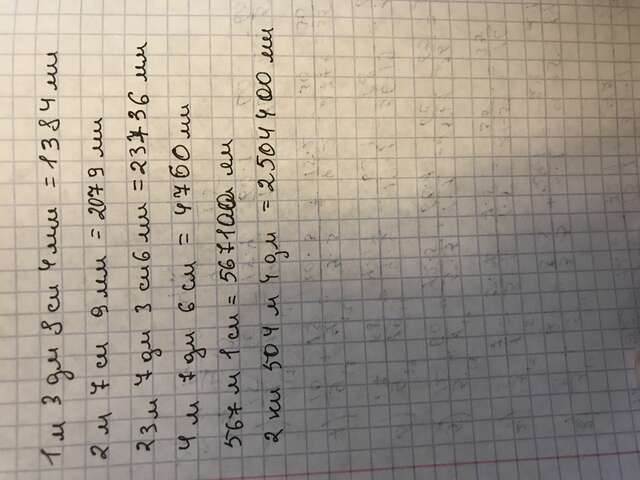 1 м 3 дм 8 см 4 мм = 1384 мм
2 м 7 см 9 мм = 2079 мм
23 м 7 дм 3 см 6 мм = 23736 мм
4 м 7 дм 6 см = 4760 мм
567 м 1 см = 567100 мм
2 км 504 м 4 дм = 2504400 мм